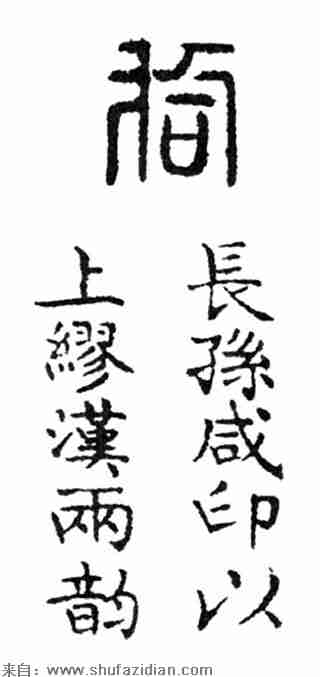 長孫咸印以
上繆漢兩韵
来自：www.shufazidian.com